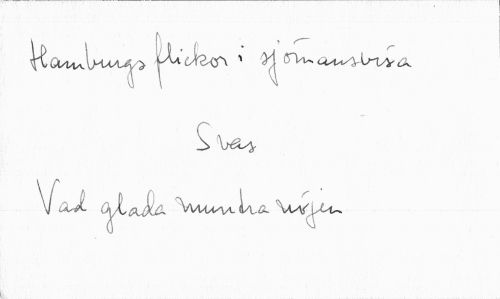 Hamburgs flickor i sjömansvisa
Svar
Vad glada muntra nöjen